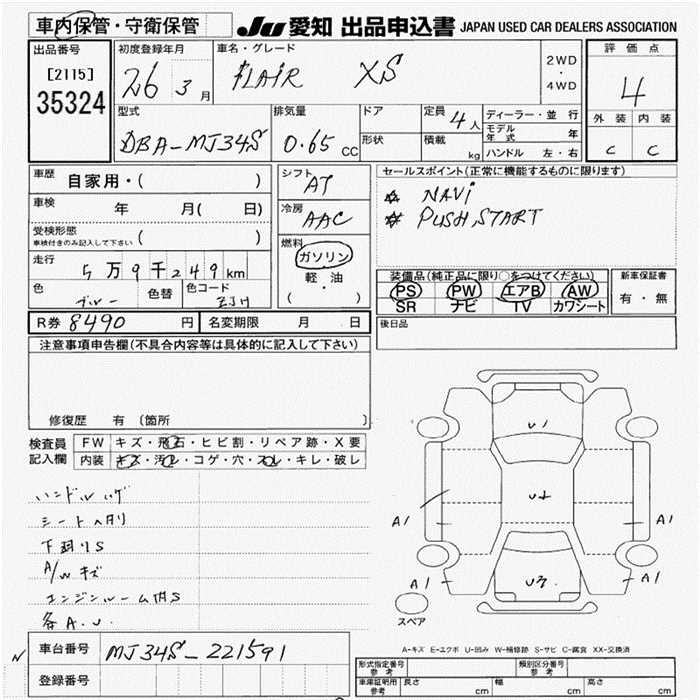 車内保管・守衛保管 JU 愛知 出品申込書 JAPAN USED CAR DEALERS ASSOCIATION
出品番号 初度登録年月 車名・グレード 評価点
[2115] 26 3月 FLAIR XS 2WD・4WD 4
35324
型式 排気量 ドア 定員 4人 ディーラー・並行 外装 内装
DBA-MJ34S 0.65cc 形状 積載 kg モデル年式 年 C C
ハンドル 左・右
車歴 自家用・( ) シフト AT セールスポイント(正常に機能するものに限ります)
車検 年 月( 日) 冷房 AAC NAVi
受検形態 車検付きのみ記入して下さい ( ) PUSH START
走行 5万9千249km 燃料 ガソリン
軽・油
( ・ )
色 ブルー 色替 色コード ZJH
装備品(純正品に限り○をつけてください) 新車保証書
PS PW エアB AW 有・無
SR ナビ TV カワシート
R券 8490円 名変期限 月 日 後日品
注意事項申告欄(不具合内容等は具体的に記入して下さい)
修復歴 有 (箇所 )
検査員 FW キズ・飛石・ヒビ割・リペア跡・X要
記入欄 内装 キズ・汚レ・コゲ・穴・スレ・キレ・破レ
ハンドルハゲ
シート
下廻りS
A/Wキズ
エンジンルーム内S
各A.U.
U1
U2
A1 A1
A1 A1
U3
スペア
A-キズ E-エクボ U-凹み W-補修跡 S-サビ C-腐食 XX-交換済
N 車台番号 MJ34S-221591
登録番号
形式指定番号 参考 類別区分番号 参考
車庫証明用 参考 長さ cm 幅 cm 高さ cm